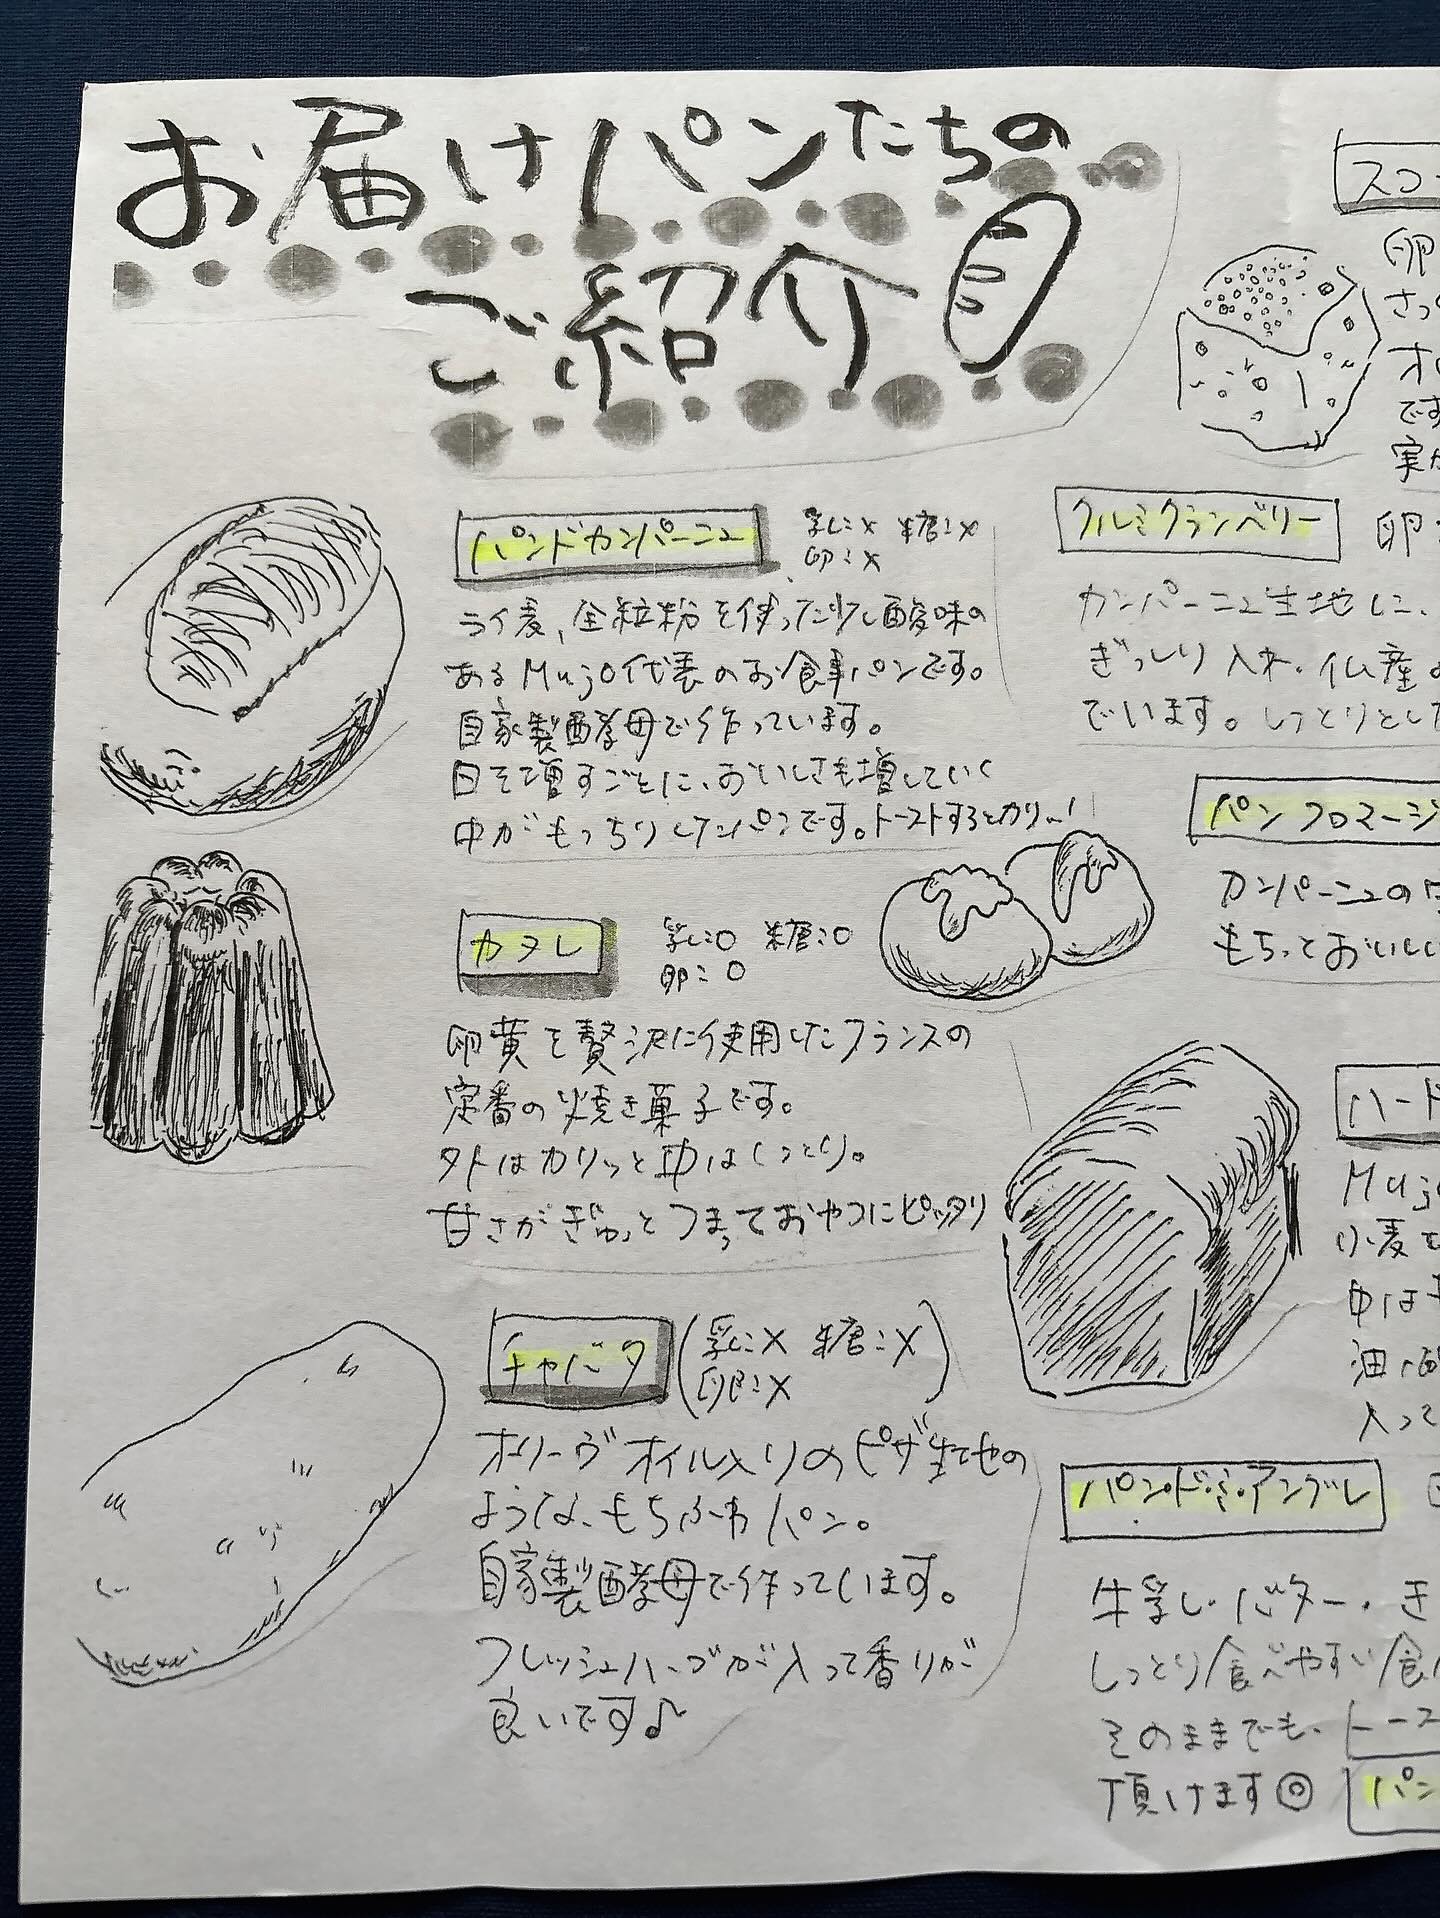 お届けパンたちの
ご紹介
パンドカンパーニュ
乳:× 糖:×
卵:×
ライ麦、全粒粉を使った少し酸味の
あるMujo代表のお食事パンです。
自家製酵母で作っています。
日を増すごとに、おいしさも増していく
中がもっちりしたパンです。トーストするとカリッ!
カヌレ
乳:○ 糖:○
卵:○
卵黄を贅沢に使用したフランスの
定番の焼き菓子です。
外はカリッと中はしっとり。
甘さがぎゅっとつまっておやつにピッタリ
チャバタ
(乳:× 糖:×
卵:×)
オリーヴオイル入りのピザ生地の
ような、もちふわパン。
自家製酵母で作っています。
フレッシュハーブが入って香りが
良いです♪
スコ
卵
さっ
オ
です
実が
クルミクランベリー
卵:
カンパーニュ生地に、
ぎっしり入れ、仏産
でいます。しっとりとした
パンフロマージ
カンパーニュの
もちっとおいしい
ハード
Muj
小麦
中は
油、
入って
パン・ド・ミ・アングレ
牛乳・バター・き
しっとり食べやすい食
そのままでも、トース
頂けます◎
パン